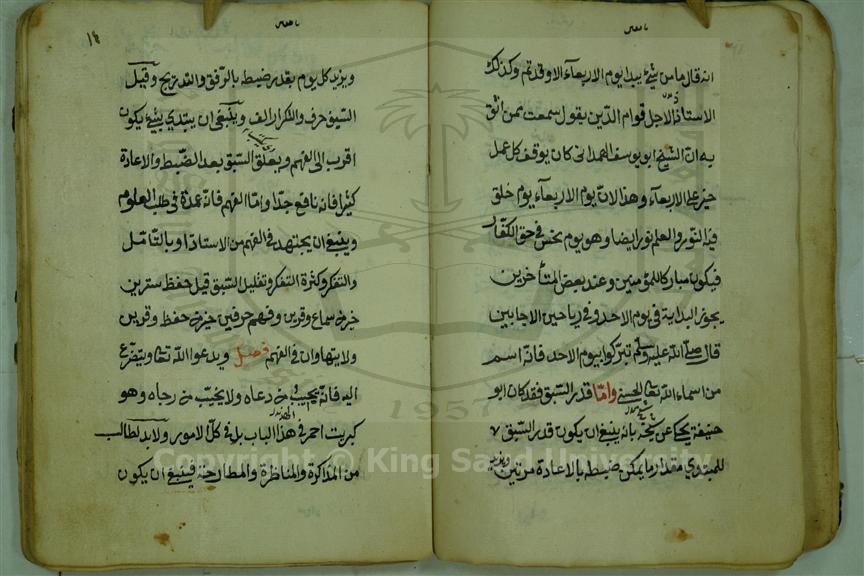 انه قال ما من شئ يبدأ يوم الاربعاء الا وقد تم وكذلك
الاستاذ الاجل قوام الدين يقول سمعت ممن اثق
به ان الشيخ ابو يوسف الهمداني كان يوقف كل عمل
خير على الاربعاء وهذا لان يوم الاربعاء يوم خلق
فيه النور والعلم نور ايضا وهو يوم نحس في حق الكفار
فيكون مباركا للمؤمنين وعند بعض المتأخرين
يجوز البداية في يوم الاحد وفي رياحين الاجابيين
قال صلى الله عليه وسلم تبركوا بيوم الاحد فانه اسم
من اسماء الله تعا الحسنى واما قدر السبق فقد كان ابو
حنيفة يحكى عن شيخه بانه ينبغي ان يكون قدر السبق
للمبتدي مقدار ما يمكن ضبطه بالاعادة مرتين
١٤
ويزيد كل يوم بقدر ضبط بالرفق والتدريج وقيل
السبق حرف والتكرار الف وينبغي ان يبتدي بشئ يكون
اقرب الى الفهم ويعلق السبق بعد الضبط والاعادة
كثيرا فانه نافع جدا واما الفهم فانه عمدة في طلب العلوم
وينبغي ان يجتهد في الفهم من الاستاذ او بالتأمل
والتفكر وكثرة التفكر وتقليل السبق قيل حفظ سترين
خير من سماع وقرين وفهم حرفين خير من حفظ وقرين
ولا يتهاون في الفهم فصل ويدعوا الله تعا ويتضرع
اليه فانه يجيب من دعاه ولا يخيب من رجاه وهو
كبريت احمر في هذا الباب بل في كل الامور ولا بد لطالب
من المذاكرة والمناظرة والمطارحة فينبغي ان يكون
Copyright © King Saud University
1957